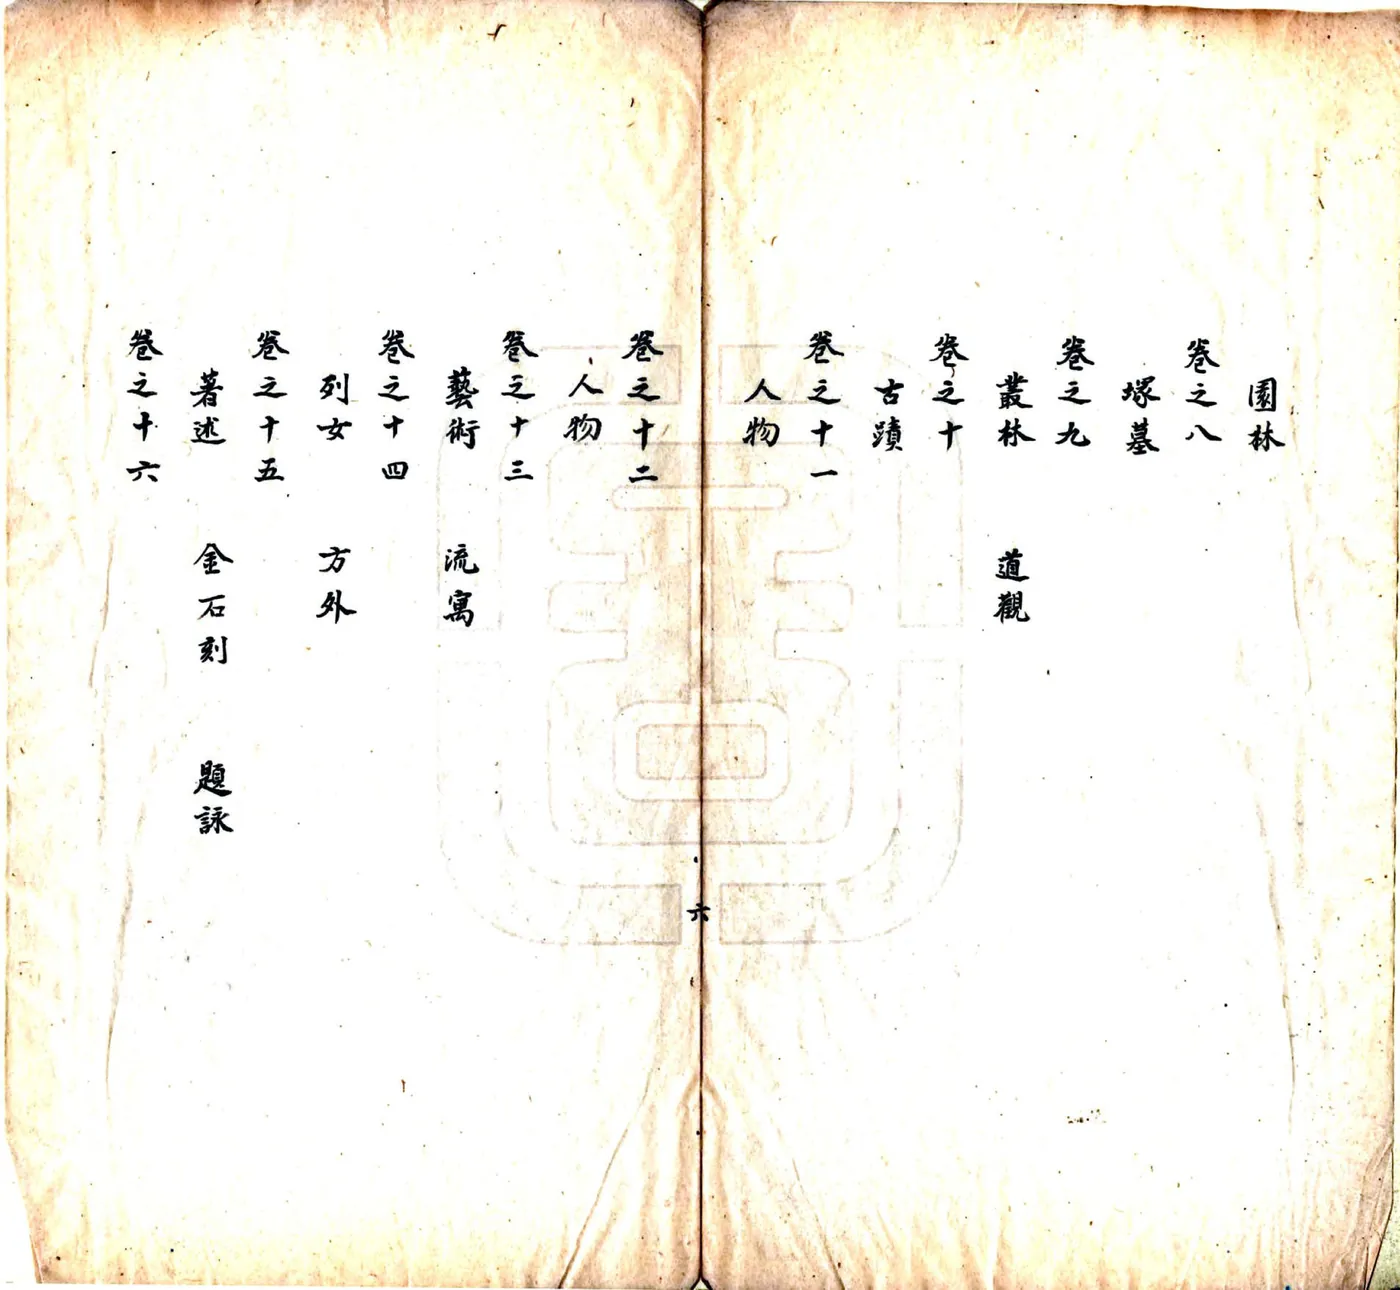 園林
卷之八
塚墓
卷之九
叢林　道觀
卷之十
古蹟
卷之十一
人物
六
卷之十二
人物
卷之十三
藝術　流寓
卷之十四
列女　方外
卷之十五
著述　金石刻　題詠
卷之十六